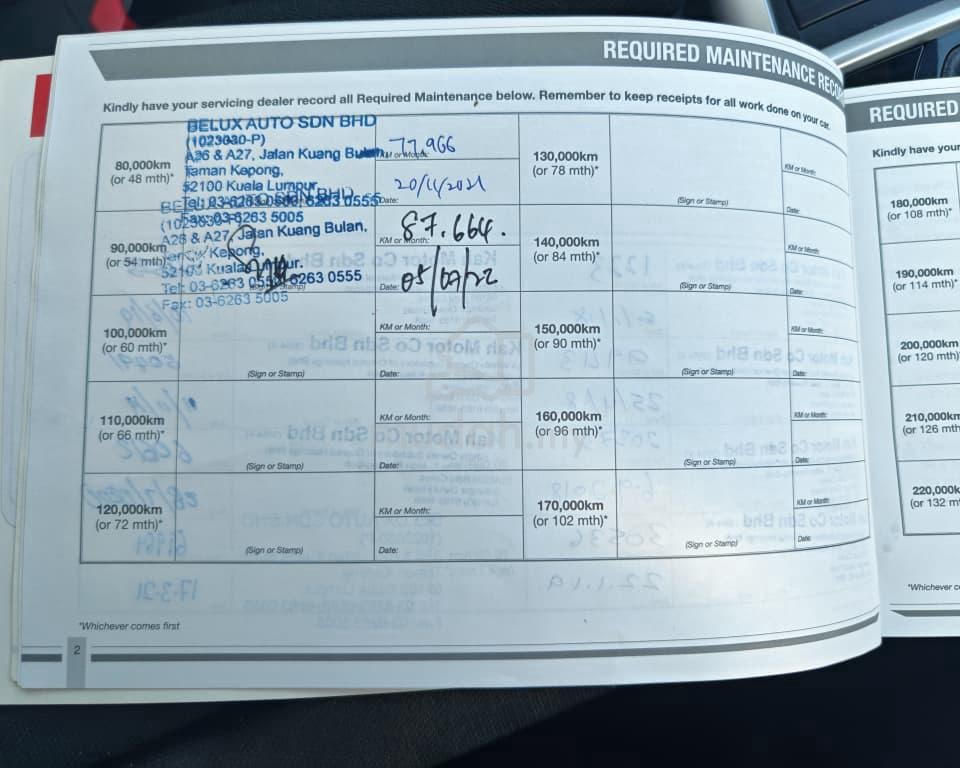 REQUIRED MAINTENANCE RECO
Kindly have your servicing dealer record all Required Maintenance below. Remember to keep receipts for all work done on your car.
80,000km
(or 48 mth)*
BELUX AUTO SDN BHD
(1023030-P)
A26 & A27, Jalan Kuang Bulan,
Taman Kepong,
52100 Kuala Lumpur.
Fax: 03-6263 5005
KM or Month: 77,966
Date: 20/11/2021
90,000km
(or 54 mth)*
A26 & A27, Jalan Kuang Bulan,
Kepong,
52100 Kuala
Tel: 03-6263 6263 0555
Fax: 03-6263 5005
KM or Month: 87.664.
Date: 05/09/22
100,000km
(or 60 mth)*
(Sign or Stamp)
KM or Month:
Date:
110,000km
(or 66 mth)*
(Sign or Stamp)
KM or Month:
Date:
120,000km
(or 72 mth)*
(Sign or Stamp)
KM or Month:
Date:
130,000km
(or 78 mth)*
(Sign or Stamp)
KM or Month:
Date:
140,000km
(or 84 mth)*
(Sign or Stamp)
KM or Month:
Date:
150,000km
(or 90 mth)*
(Sign or Stamp)
KM or Month:
Date:
160,000km
(or 96 mth)*
(Sign or Stamp)
KM or Month:
Date:
170,000km
(or 102 mth)*
(Sign or Stamp)
KM or Month:
Date:
*Whichever comes first
2
REQUIRED
Kindly have your
180,000km
(or 108 mth)*
190,000km
(or 114 mth)*
200,000km
(or 120 mth)
210,000km
(or 126 mth
220,000k
(or 132 m
*Whichever c